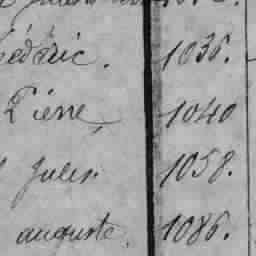 édéric. 1036.
Pierre, 1040
Jules. 1058.
auguste. 1086.